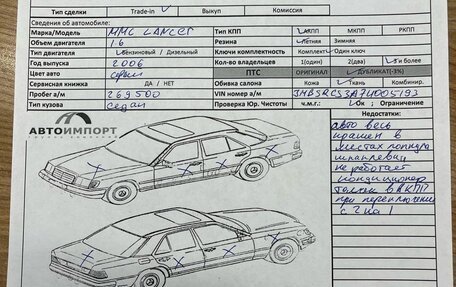 Тип сделки Trade-in ✓ Выкуп Комиссия
Сведения об автомобиле:
Марка/Модель ММС LANCER Тип КПП МКПП РКПП
Объем двигателя 1.6 Резина Летняя Зимняя
Тип двигателя Бензиновый / Дизельный Ключи комплектность Комплект Один ключ
Год выпуска 2006 Кол-во владельцев 1(один) 2(два) 3 и более
Цвет авто серый ПТС ОРИГИНАЛ ДУБЛИКАТ(-3%)
Сервисная книжка ДА / НЕТ Обивка салона Кожа Ткань Комбинир.
Пробег а/м 269500 VIN номер а/м
Тип кузова Седан Проверка Юр. Чистоты ч.м.г.: Ок / Ограничения
АВТОИМПОРТ
ГРУППА КОМПАНИЙ
Недостатки:
авто весь
крашен в
местах
шпаклевки
не работает
кондиционер
толчки в АКПП
при переключении
с 2 на 1